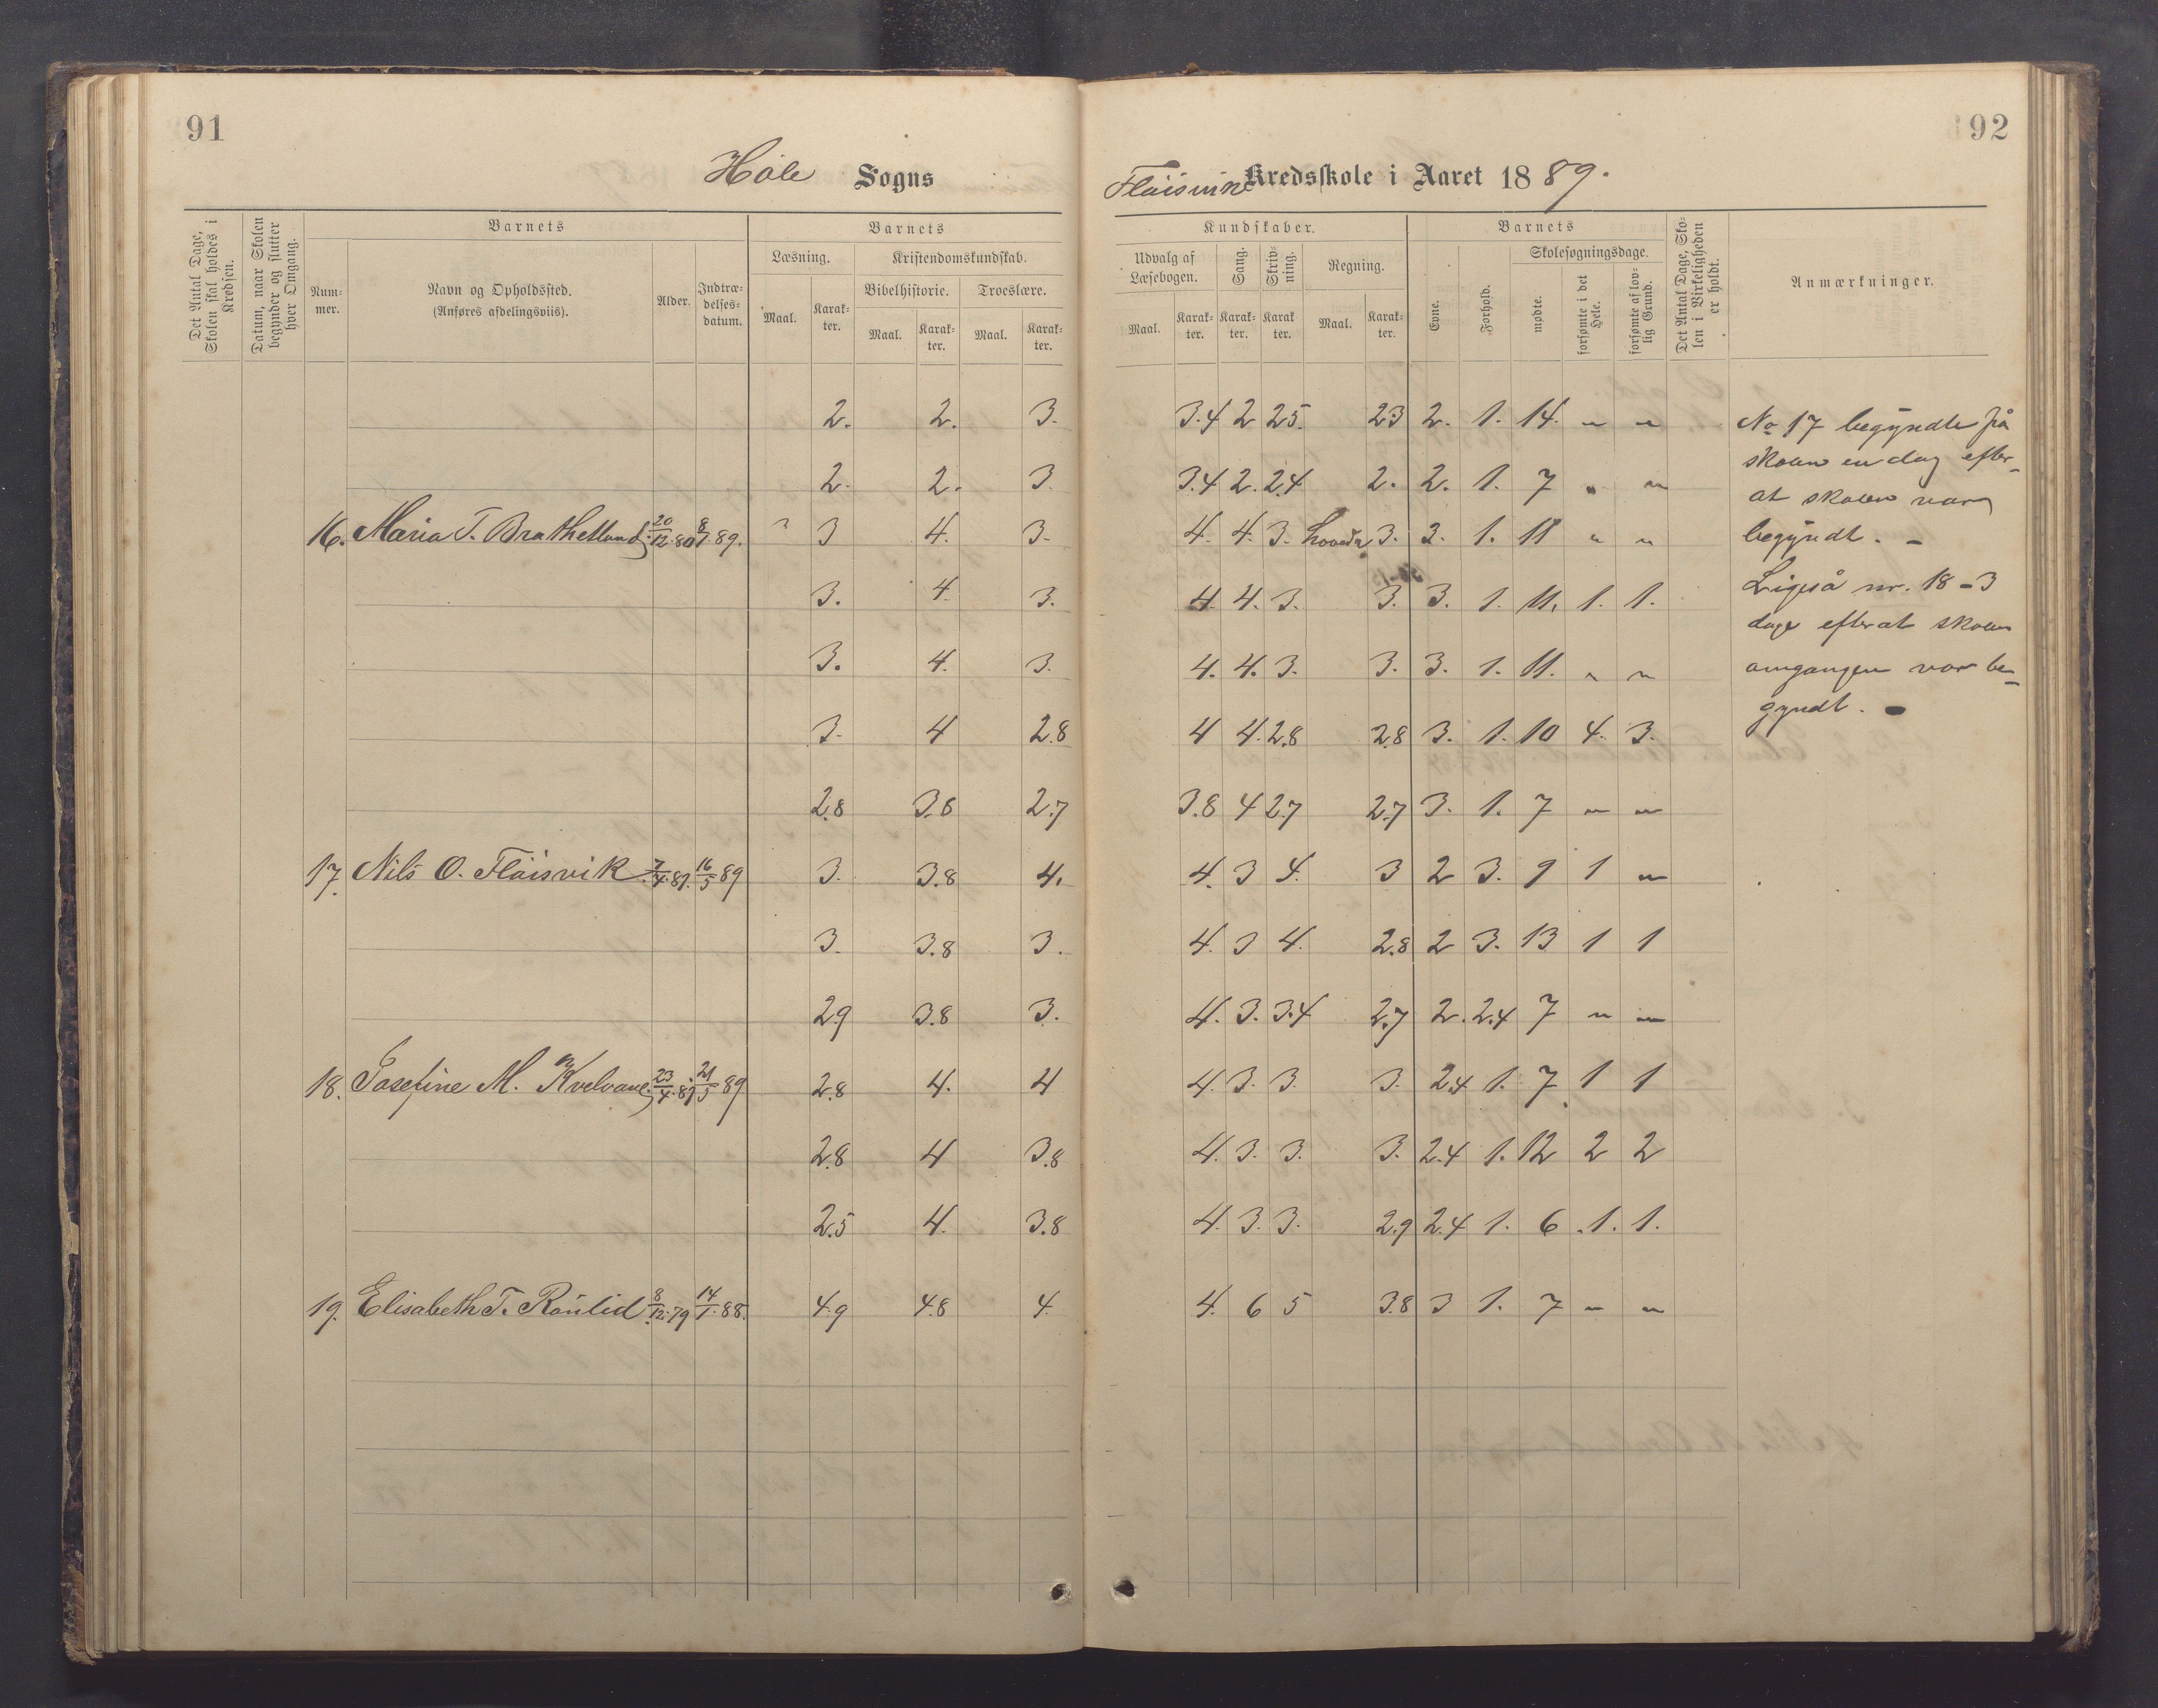 91
92
Høle Sogns
Fløisvik Kredsskole i Aaret 1889.
Det Antal Dage, Skolen skal holdes i Kredsen.
Datum, naar Skolen begynder og slutter hver Omgang.
Barnets
Num-
mer.
Navn og Opholdssted.
(Anføres afdelingsviis).
Alder.
Indtræ-
delses-
datum.
Barnets
Læsning.
Maal.
Karak-
ter.
Kristendomskundskab.
Bibelhistorie.
Maal.
Karak-
ter.
Troeslære.
Maal.
Karak-
ter.
Kundskaber.
Udvalg af
Læsebogen.
Maal.
Karak-
ter.
Sang.
Karak-
ter.
Skriv-
ning.
Karak
ter.
Regning.
Maal.
Karak-
ter.
Barnets
Evne.
Forhold.
Skolesøgningsdage.
mødte.
forsømte i det
Hele.
forsømte af lov-
lig Grund.
Det Antal Dage, Sko-
len i Virkeligheden
er holdt.
Anmærkninger.
2. 2. 3. 3.4 2 2.5. 2.3 2. 1. 14. " "
2. 2. 3. 3.4 2. 2.4 2. 2. 1. 7 " "
16. Maria T. Brathetland 20/12.80 8/1.89. 3 4. 3. 4. 4. 3. 3. 3. 1. 11 " "
3. 4. 3. 4. 4. 3. 3. 3. 1. 11. 1. 1.
3. 4. 3. 4. 4. 3. 3. 3. 1. 11. " "
3. 4 2.8 4 4. 2.8 2.8 3. 1. 10 4. 3.
2.8 3.8 2.7 3.8 4 2.7 2.7 3. 1. 7 " "
17. Nils O. Fløisvik 7/4.81. 16/5 89 3. 3.8 4. 4. 3 4. 3 2 3. 9 1 "
3. 3.8 3. 4. 3 4. 2.8 2 3. 13 1 1
2.9 3.8 3. 4. 3. 3.4 2.7 2. 2.4 7 " "
18. Josefine M. Kvelvane 23/4.81 21/5 89 2.8 4. 4 4. 3. 3. 3. 2.4 1. 7 1 1
2.8 4 3.8 4. 3. 3. 3. 2.4 1. 12 2 2
2.5 4. 3.8 4. 3. 3. 2.9 2.4 1. 6 1. 1.
19. Elisabeth T. Rønlid 8/12.79 14/1.88. 4.9 4.8 4. 4. 6 5 3.8 3 1. 7 " "
No 17 begyndte på
skolen en dag efter
at skolen var
begyndt. –
Ligeså nr. 18 – 3
dage efter at skole
omgangen var be-
gyndt. –